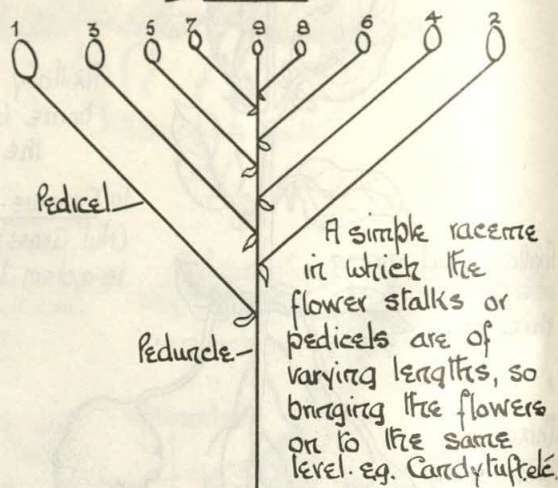 1 3 5 7 9 8 6 4 2
Pedicel
Peduncle
A simple raceme
in which the
flower stalks or
pedicels are of
varying lengths, so
bringing the flowers
on to the same
level. e.g. Candytuft etc.